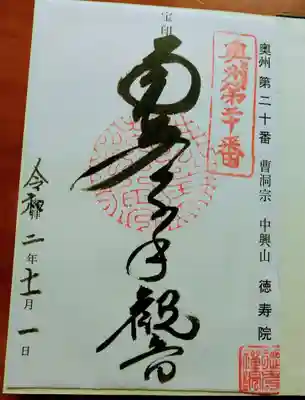 奥州 第二十番 曹洞宗 中興山 徳寿院
奥州第二十番
宝印
千手観音
令和二年十一月一日